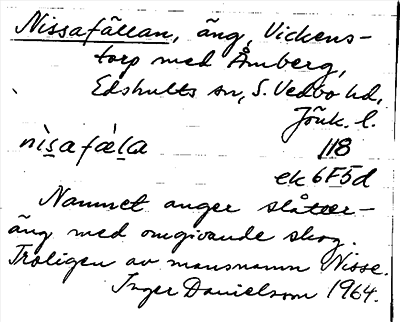 Nissafällan, äng, Vickens-
torp med Åmberg,
Edshults sn, S. Vedbo hd,
Jönk. l.
nìs̲a fæ̀l̲a 118
ek 6F5d
Namnet anger slåtter-
äng med omgivande skog.
Troligen av mansnamn Nisse.
Inger Danielsson 1964.